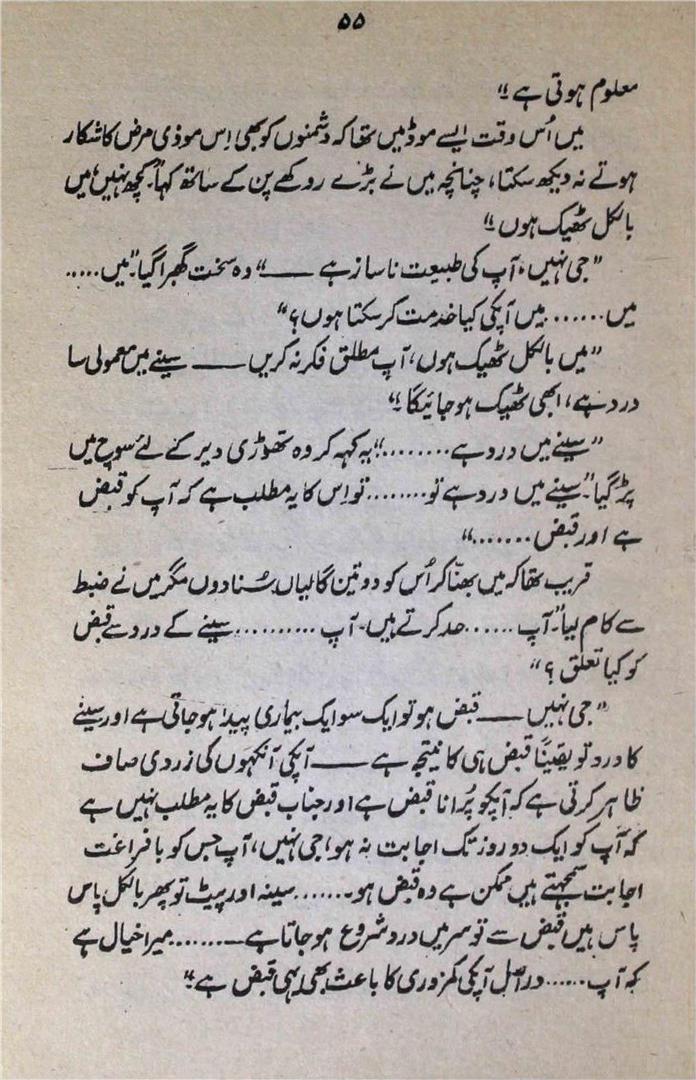 ۵۵
معلوم ہوتی ہے"
میں اُس وقت ایسے موڈ میں تھا کہ دشمنوں کو بھی اِس موذی مرض کا شکار
ہوتے نہ دیکھ سکتا، چنانچہ میں نے بڑے روکھے پن کے ساتھ کہا "کچھ نہیں، میں
بالکل ٹھیک ہوں"
"جی نہیں، آپ کی طبیعت ناساز ہے ——" وہ سخت گھبرا گیا۔ "میں.....
میں...... میں آپکی کیا خدمت کر سکتا ہوں؟"
"میں بالکل ٹھیک ہوں، آپ مطلق فکر نہ کریں —— سینے میں معمولی سا
درد ہے، ابھی ٹھیک ہو جائیگا"
"سینے میں درد ہے........" یہ کہہ کر وہ تھوڑی دیر کے لئے سوچ میں
پڑ گیا۔ "سینے میں درد ہے تو........ تو اِس کا یہ مطلب ہے کہ آپ کو قبض
ہے اور قبض......."
قریب تھا کہ میں بھنّا کر اُس کو دو تین گالیاں سُنا دوں مگر میں نے ضبط
سے کام لیا "آپ...... حد کرتے ہیں۔ آپ.......... سینے کے درد سے قبض
کو کیا تعلق؟"
"جی نہیں —— قبض ہو تو ایک سو ایک بیماری پیدا ہو جاتی ہے اور سینے
کا درد تو یقیناً قبض ہی کا نتیجہ ہے —— آپکی آنکھوں کی زردی صاف
ظاہر کرتی ہے کہ آپکو پُرانا قبض ہے اور جناب قبض کا یہ مطلب نہیں ہے
کہ آپ کو ایک دو روز تک اجابت نہ ہو، جی نہیں، آپ جس کو با فراغت
اجابت سمجھتے ہیں ممکن ہے وہ قبض ہو۔....... سینہ اور پیٹ تو پھر بالکل پاس
پاس ہیں قبض سے تو سر میں درد شروع ہو جاتا ہے........ میرا خیال ہے
کہ آپ...... دراصل آپکی کمزوری کا باعث بھی یہی قبض ہے"